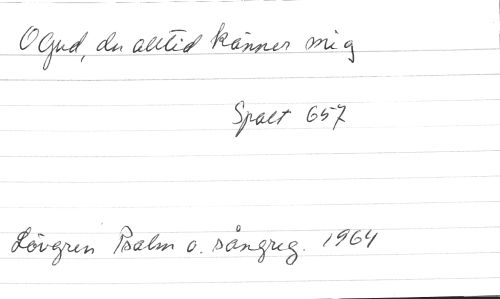 O Gud, du alltid känner mig
Spalt 657
Lövgren Psalm o. sångreg. 1964